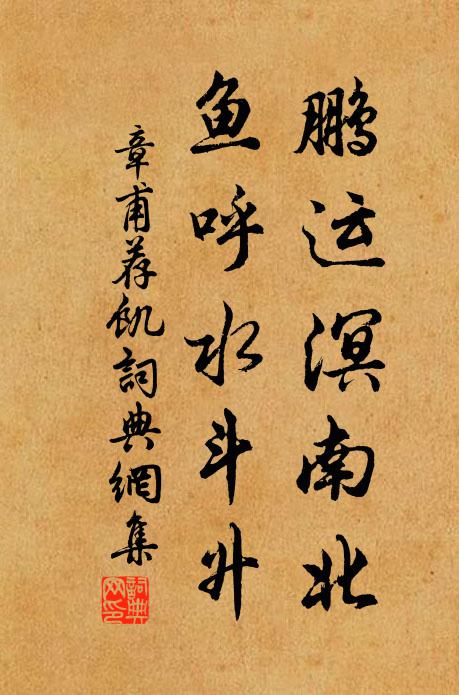 鹏运溟南北
鱼呼水斗升
章甫荐饥詞典網集
詞典网印